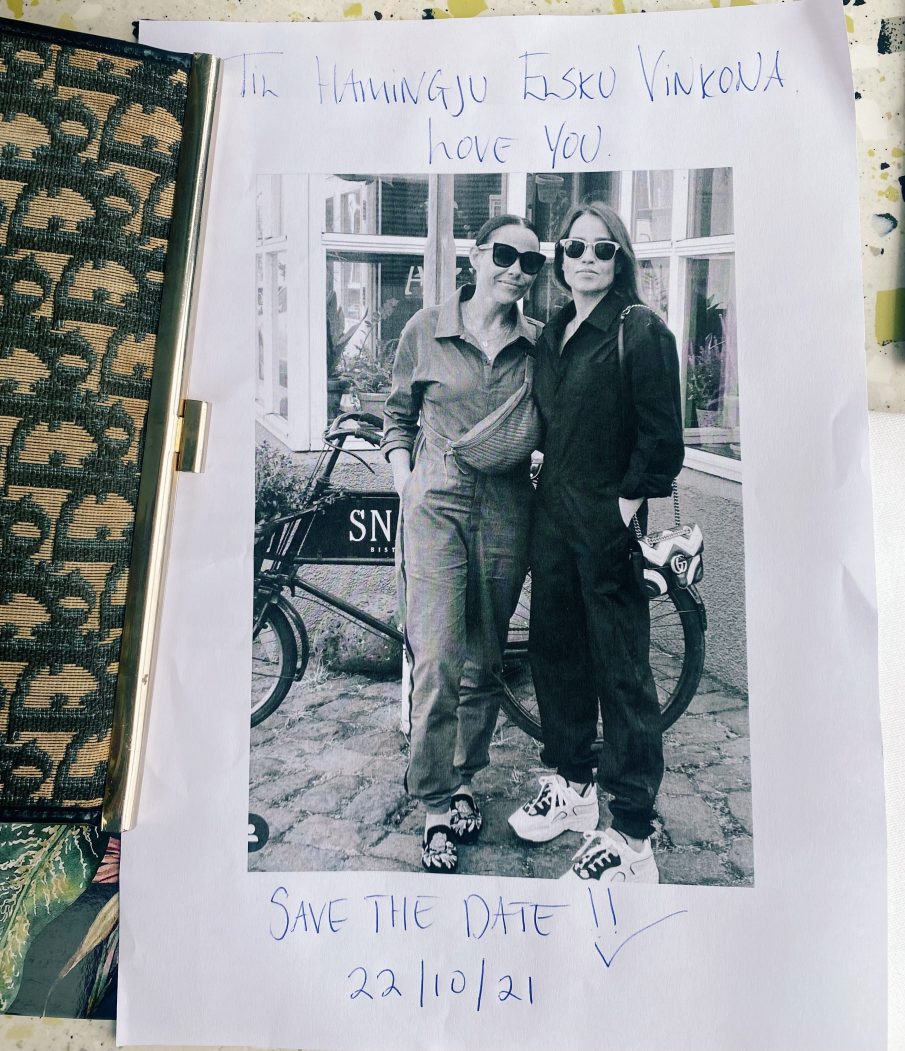 TIL HAMINGJU ELSKU VINKONA.
LOVE YOU.
SN
BIST
GG
SAVE THE DATE !!
22/10/21